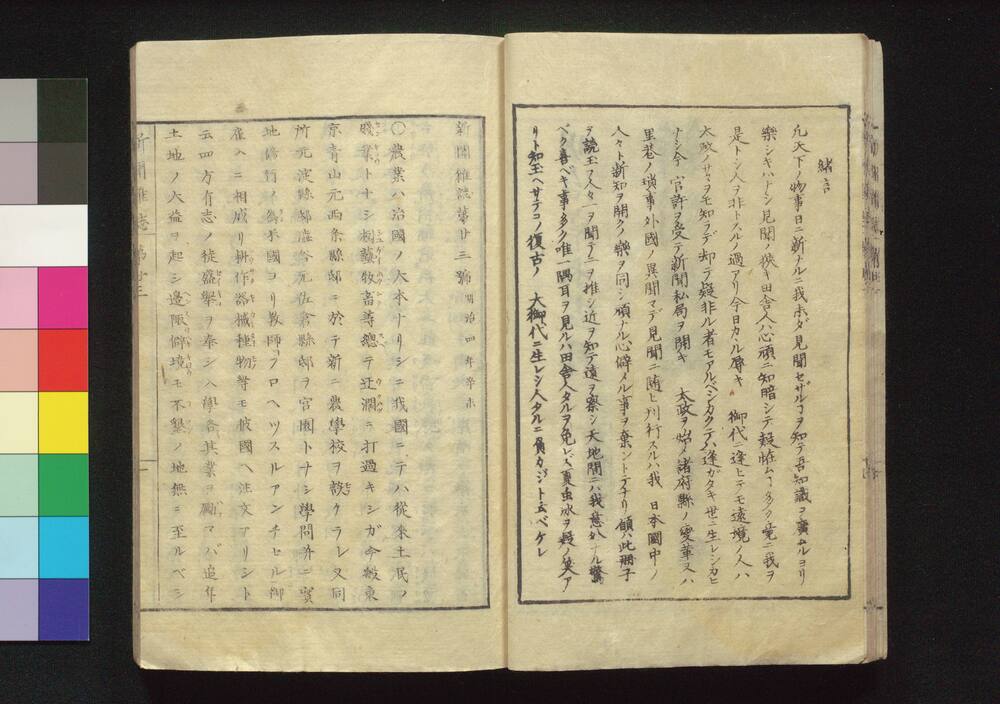 緒言
凢天下ノ物事日ニ新ナルニ我未ダ見聞セザルヿヲ知テ吾知識ヲ廣ムルヨリ
樂シキハナシ見聞ノ狹キ田舎人ハ心頑ニ知暗シテ疑恠ムヿ多ク覚ニ我ヲ
是トシ人ヲ非トスルノ過アリ今日カヽル辱キ 御代ニ逢ヒテモ遠境ノ人ハ
太政ノサマヲモ知ラデ却テ疑非ル者モアルベシカクテハ逢ガタキ世ニ生レシカヒ
ナシ今 官許ヲ受テ新聞私局ヲ開キ 太政ヲ始メ諸府縣ノ変革又ハ
里巷ノ瑣事外國ノ異聞マデ見聞ニ随ヒ刋行スルハ我 日本國中ノ
人々ト新知ヲ開クノ樂ヲ同シ頑ナル心僻メル事ヲ棄ントテナリ願ハ此冊子
ヲ読玉フ人々一ヲ聞テ二ヲ推シ近ヲ知テ遠ヲ察シ天地間ニハ我意外ナル驚
ベク喜ベキ事多ク唯一隅耳ヲ見ルハ田舎人タルヲ免レズ夏虫氷ヲ疑ノ笑ア
リト知玉ヘサテコノ復古ノ 大御代ニ生レシ人タルニ負カジト云ベケレ
新聞雑誌第廿三號 明治四年辛未
〇農業ハ治國ノ大本ナリシニ我國ニテハ從來土民ノ
賤業トナシ樹藝牧畜等總テ迂濶ニ打過キシガ今般東
京青山元西条縣邸ニ於テ新ニ農學校ヲ設ケラレ又同
所元淀縣邸澁谷元佐倉縣邸ヲ官園トナシ學問并ニ實
地修行ノ為米國ヨリ教師フロヘツスルアンチセル御
雇ヘニ相成リ耕作器械種物等モ彼國ヘ注文アリシト
云四方有志ノ徒盛舉ヲ奉シ入學各其業ヲ勵マバ追年
土地ノ大益ヲ起シ邊陬僻境モ不墾ノ地無ニ至ルベシ
新聞雑誌 第廿三 一